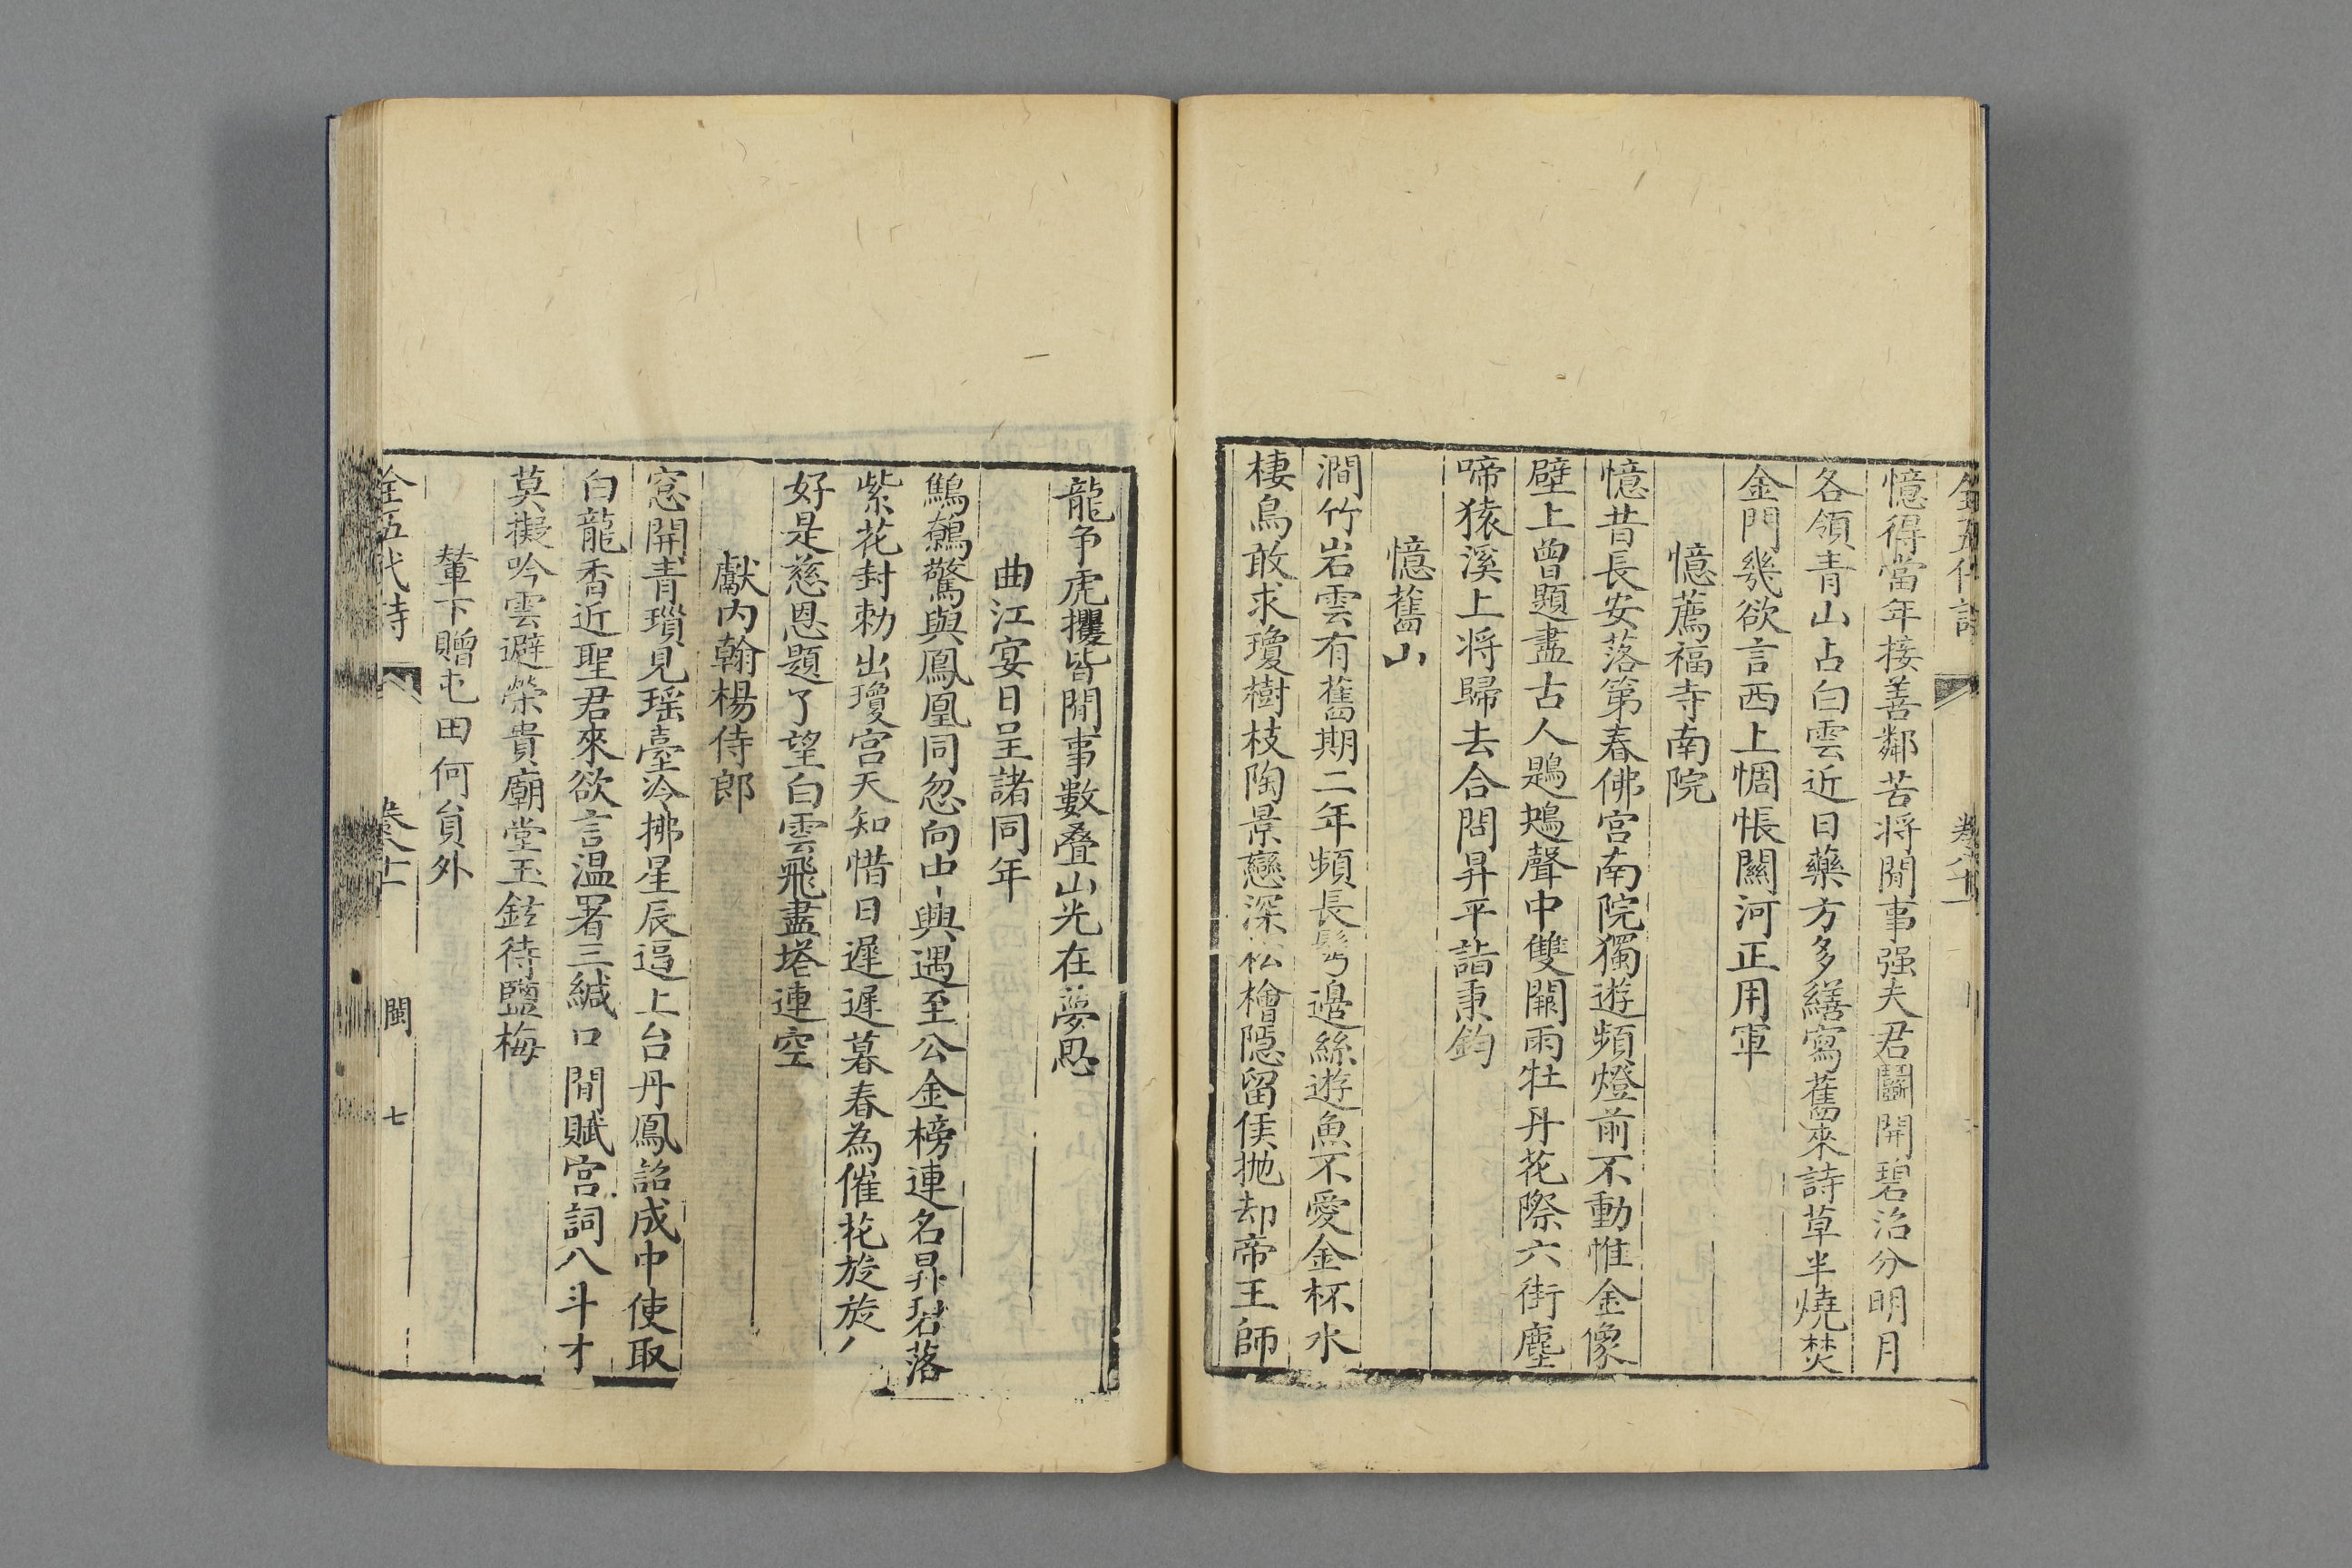 全五代詩 卷八十一
憶得當年接善鄰苦將閒事强夫君鬭開碧沼分明月
各領青山占白雲近日藥方多繕寫舊來詩草半燒焚
金門幾欲言西上惆悵關河正用軍
憶薦福寺南院
憶昔長安落第春佛宮南院獨遊頻燈前不動惟金像
壁上曾題盡古人鶗鴂聲中雙闕雨牡丹花際六街塵
啼猿溪上將歸去合問昇平詣秉鈞
憶舊山
澗竹岩雲有舊期二年頻長鬢邊絲遊魚不愛金杯水
棲鳥敢求瓊樹枝陶景戀深松檜隱留侯抛却帝王師
龍争虎攫皆閒事數叠山光在夢思
曲江宴日呈諸同年
鷦鷯驚與鳳凰同忽向中興遇至公金榜連名昇碧落
紫花封勅出瓊宮天知惜日遲遲暮春為催花旋旋
好是慈恩題了望白雲飛盡塔連空
獻内翰楊侍郎
窓開青瑣見瑶臺冷拂星辰逼上台丹鳳詔成中使取
白龍香近聖君來欲言温署三緘口閒賦宮詞八斗才
莫擬吟雲避榮貴廟堂玉鉉待鹽梅
輦下贈屯田何員外
全五代詩 卷八十一 閩 七